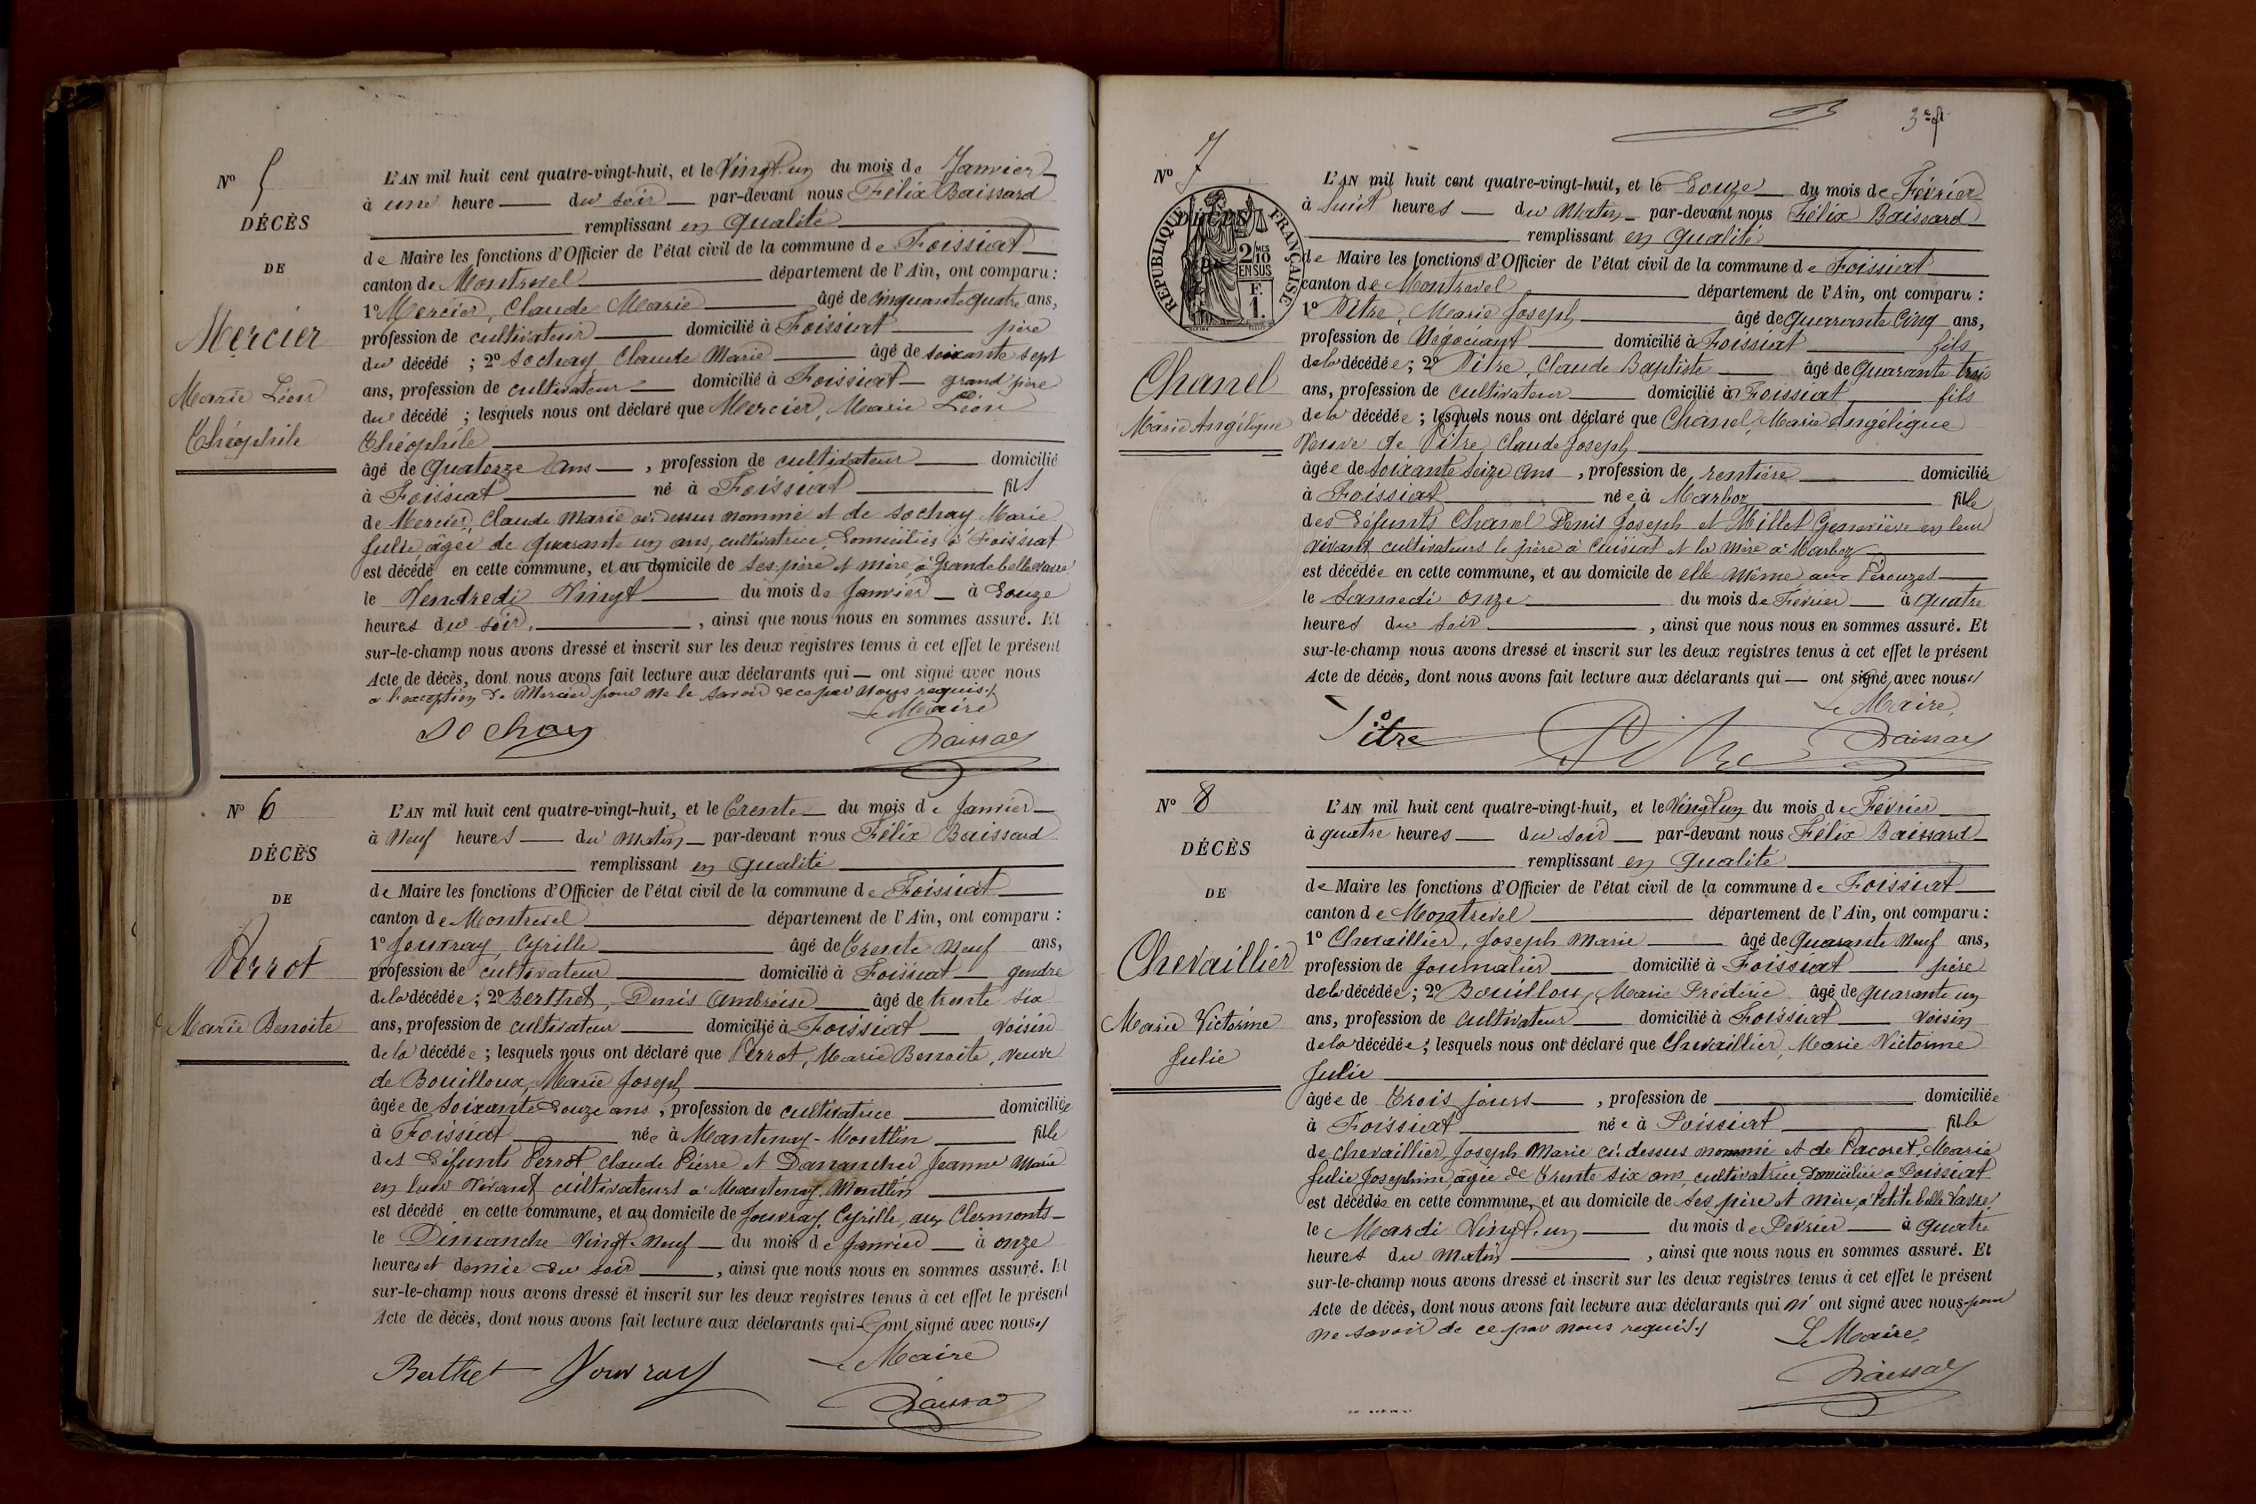 N° 5
DÉCÈS
DE
Mercier
Marie Léon
Théophile
L'AN mil huit cent quatre-vingt-huit, et le Vingt un du mois de Janvier
à une heure du soir par-devant nous Félix Baissard
remplissant en qualité
de Maire les fonctions d'Officier de l'état civil de la commune de Foissiat
canton de Montrevel département de l'Ain, ont comparu :
1° Mercier, Claude Marie âgé de Cinquante quatre ans,
profession de cultivateur domicilié à Foissiat père
du décédé ; 2° Sochay Claude Marie âgé de soixante sept
ans, profession de cultivateur domicilié à Foissiat grand'père
du décédé ; lesquels nous ont déclaré que Mercier, Marie Léon
Théophile
âgé de quatorze ans, profession de cultivateur domicilié
à Foissiat né à Foissiat fils
de Mercier, Claude Marie ci-dessus nommé et de Sochay Marie
Julie, âgée de quarante un ans, cultivatrice, domiciliés à Foissiat
est décédé en cette commune, et au domicile de ses père et mère, à Grande bellevavre
le Vendredi Vingt du mois de Janvier à Douze
heures du soir, ainsi que nous nous en sommes assuré. Et
sur-le-champ nous avons dressé et inscrit sur les deux registres tenus à cet effet le présent
Acte de décès, dont nous avons fait lecture aux déclarants qui ont signé avec nous
à l'exception de Mercier pour ne le savoir de ce par nous requis.
Le Maire
Sochay
Baissard
N° 6
DÉCÈS
DE
Perrot
Marie Benoite
L'AN mil huit cent quatre-vingt-huit, et le Trente du mois de Janvier
à Neuf heures du matin par-devant nous Félix Baissard
remplissant en qualité
de Maire les fonctions d'Officier de l'état civil de la commune de Foissiat
canton de Montrevel département de l'Ain, ont comparu :
1° Jouvray, Cyrille âgé de Trente Neuf ans,
profession de cultivateur domicilié à Foissiat gendre
de la décédée ; 2° Berthet, Denis Ambroise âgé de trente six
ans, profession de cultivateur domicilié à Foissiat voisin
de la décédée ; lesquels nous ont déclaré que Perrot, Marie Benoite, veuve
de Bouilloux, Marie Joseph
âgée de soixante douze ans, profession de cultivatrice domiciliée
à Foissiat née à Mantenay-Montlin fille
des défunts Perrot Claude Pierre et Danancher Jeanne Marie
en leur vivant cultivateurs à Mantenay Montlin
est décédé en cette commune, et au domicile de Jouvray, Cyrille, aux Clermonts
le Dimanche Vingt-Neuf du mois de Janvier à onze
heures et demie du soir, ainsi que nous nous en sommes assuré. Et
sur-le-champ nous avons dressé et inscrit sur les deux registres tenus à cet effet le présent
Acte de décès, dont nous avons fait lecture aux déclarants qui ont signé avec nous
Le Maire
Berthet Jouvray
Baissard
3e
N° 7
DÉCÈS
RÉPUBLIQUE FRANÇAISE
2 MES 10 EN SUS
F. 1.
Chanel
Marie Angélique
L'AN mil huit cent quatre-vingt-huit, et le Douze du mois de Février
à huit heures du matin par-devant nous Félix Baissard
remplissant en qualité
de Maire les fonctions d'Officier de l'état civil de la commune de Foissiat
canton de Montrevel département de l'Ain, ont comparu :
1° Pitre, Marie Joseph âgé de quarante Cinq ans,
profession de Négociant domicilié à Foissiat fils
de la décédée ; 2° Pitre, Claude Baptiste âgé de quarante trois
ans, profession de cultivateur domicilié à Foissiat fils
de la décédée ; lesquels nous ont déclaré que Chanel, Marie Angélique
Veuve de Pitre, Claude Joseph
âgée de soixante seize ans, profession de rentière domiciliée
à Foissiat née à Marboz fille
des défunts Chanel Denis Joseph et Millet Geneviève en leur
vivant cultivateurs le père à Cuisiat et la mère à Marboz
est décédée en cette commune, et au domicile de elle même aux Perouzes
le Samedi onze du mois de Février à quatre
heures du soir, ainsi que nous nous en sommes assuré. Et
sur-le-champ nous avons dressé et inscrit sur les deux registres tenus à cet effet le présent
Acte de décès, dont nous avons fait lecture aux déclarants qui ont signé avec nous
Le Maire,
Pitre Pitre
Baissard
N° 8
DÉCÈS
DE
Chevaillier
Marie Victorine
Julie
L'AN mil huit cent quatre-vingt-huit, et le Vingt un du mois de Février
à quatre heures du soir par-devant nous Félix Baissard
remplissant en qualité
de Maire les fonctions d'Officier de l'état civil de la commune de Foissiat
canton de Montrevel département de l'Ain, ont comparu :
1° Chevaillier, Joseph Marie âgé de quarante Neuf ans,
profession de Journalier domicilié à Foissiat père
de la décédée ; 2° Bouilloux, Marie Fréderic âgé de quarante un
ans, profession de cultivateur domicilié à Foissiat voisin
de la décédée ; lesquels nous ont déclaré que Chevaillier, Marie Victorine
Julie
âgée de Trois jours, profession de domiciliée
à Foissiat née à Foissiat fille
de Chevaillier, Joseph Marie ci-dessus nommé et de Pacoret, Marie
Julie Josephine, âgée de trente six ans, cultivatrice, domiciliée à Foissiat
est décédée en cette commune, et au domicile de ses père et mère, à Petite belle Vavre
le Mardi Vingt-un du mois de Février à quatre
heures du matin, ainsi que nous nous en sommes assuré. Et
sur-le-champ nous avons dressé et inscrit sur les deux registres tenus à cet effet le présent
Acte de décès, dont nous avons fait lecture aux déclarants qui n'ont signé avec nous pour
ne savoir de ce par nous requis.
Le Maire,
Baissard